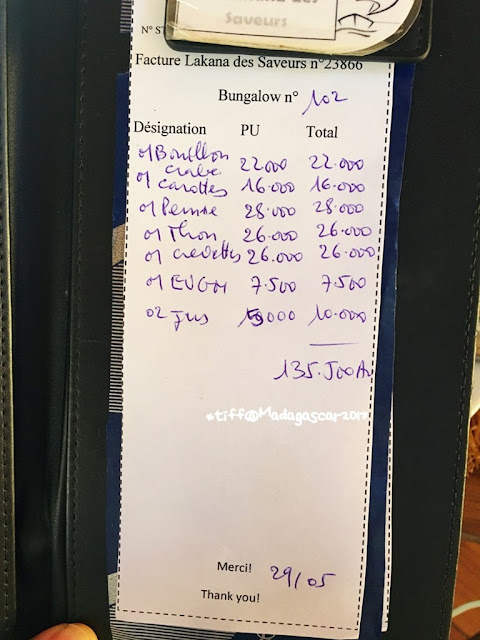 des
Saveurs
N° ST
Facture Lakana des Saveurs n°23866
Bungalow n° 102
Désignation PU Total
01 Bouillon crabe 22000 22.000
01 carottes 16.000 16.000
01 Penne 28.000 28.000
01 Thon 26.000 26.000
01 crevettes 26.000 26.000
01 EVGM 7.500 7.500
02 Jus 5000 10.000
135.500 Ar
*tiff@Madagascar2017
Merci! 29/05
Thank you!